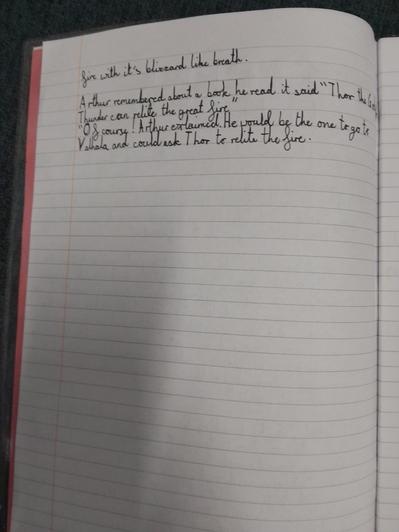 fire with it's blizzard like breath.
Arthur remembered about a book he read it said "Thor the God
Thunder can relite the great fire"
"Of course! Arthur exclaimed. He would be the one to go to
Valhala and could ask Thor to relite the fire.